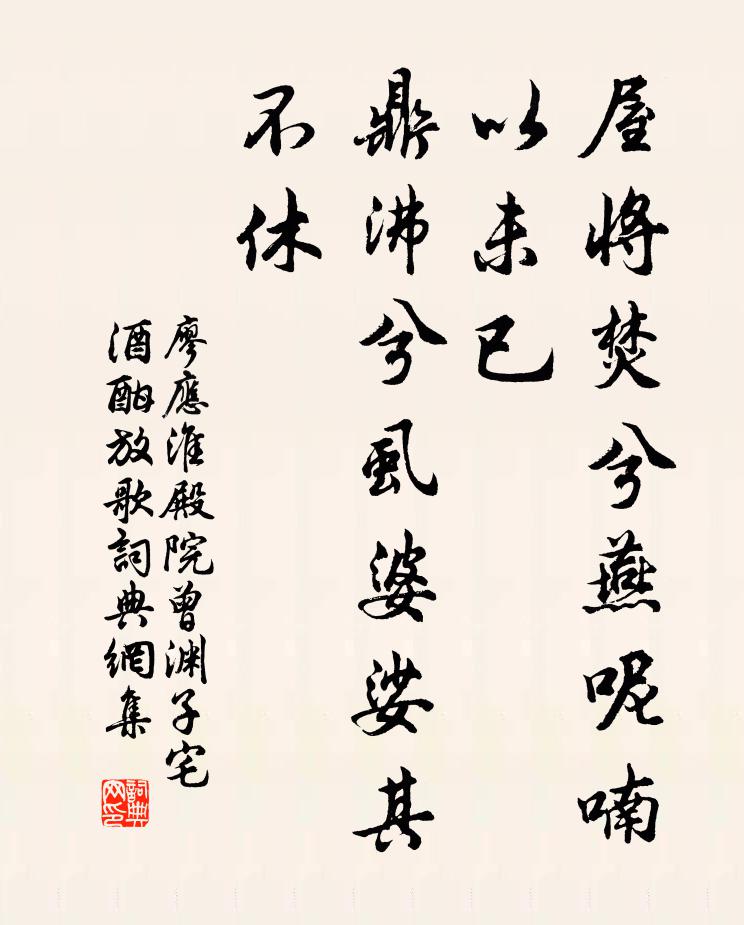 屋將焚兮燕呢喃
以未已
鼎沸兮虱婆娑其
不休
廖應淮殿院曾渊子宅
酒酣放歌詞典網集
詞典网印